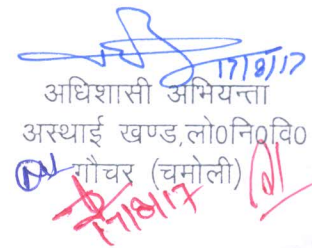 17/8/17
अधिशासी अभियन्ता
अस्थाई खण्ड,लो0नि0वि0
गौचर (चमोली)
17/8/17